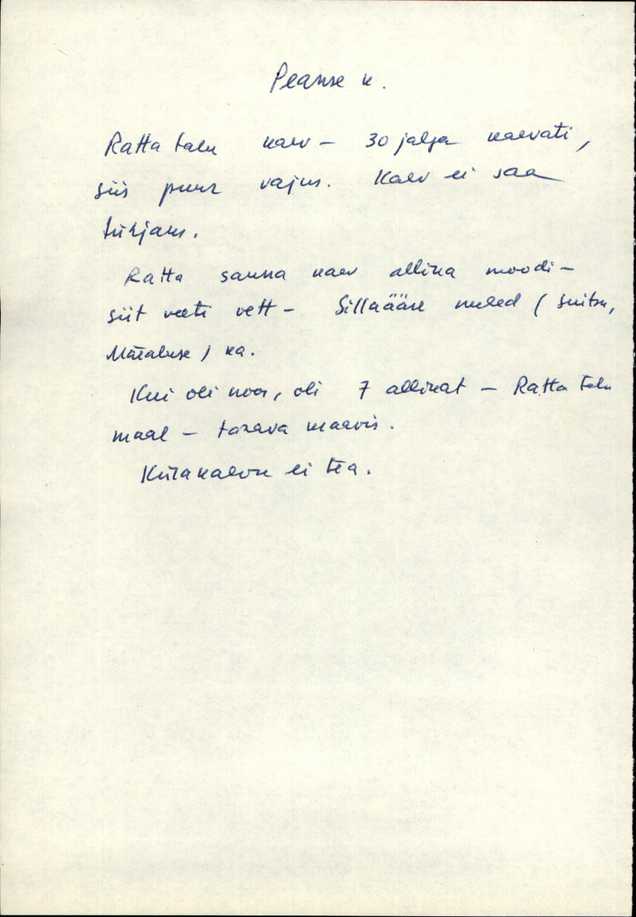 Peanse k.
Ratta talu kaev – 30 jalga kaevati,
siis puur vajus. Kaev ei saa
tühjaks.
Ratta sauna kaev allika moodi –
siit veeti vett – Sillaääre mehed (suitsu,
) ka.
Kui oli noor, oli 7 allikat – Ratta talu
maal –
Külakaevu ei tea.